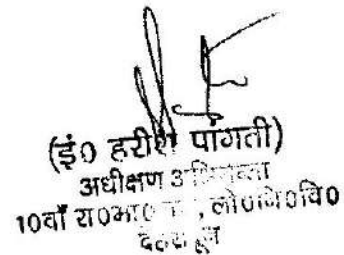 (इं० हरीश पांगती)
अधीक्षण अभियन्ता
10वॉं रा०मा० , लो०नि०वि०
देहरादून